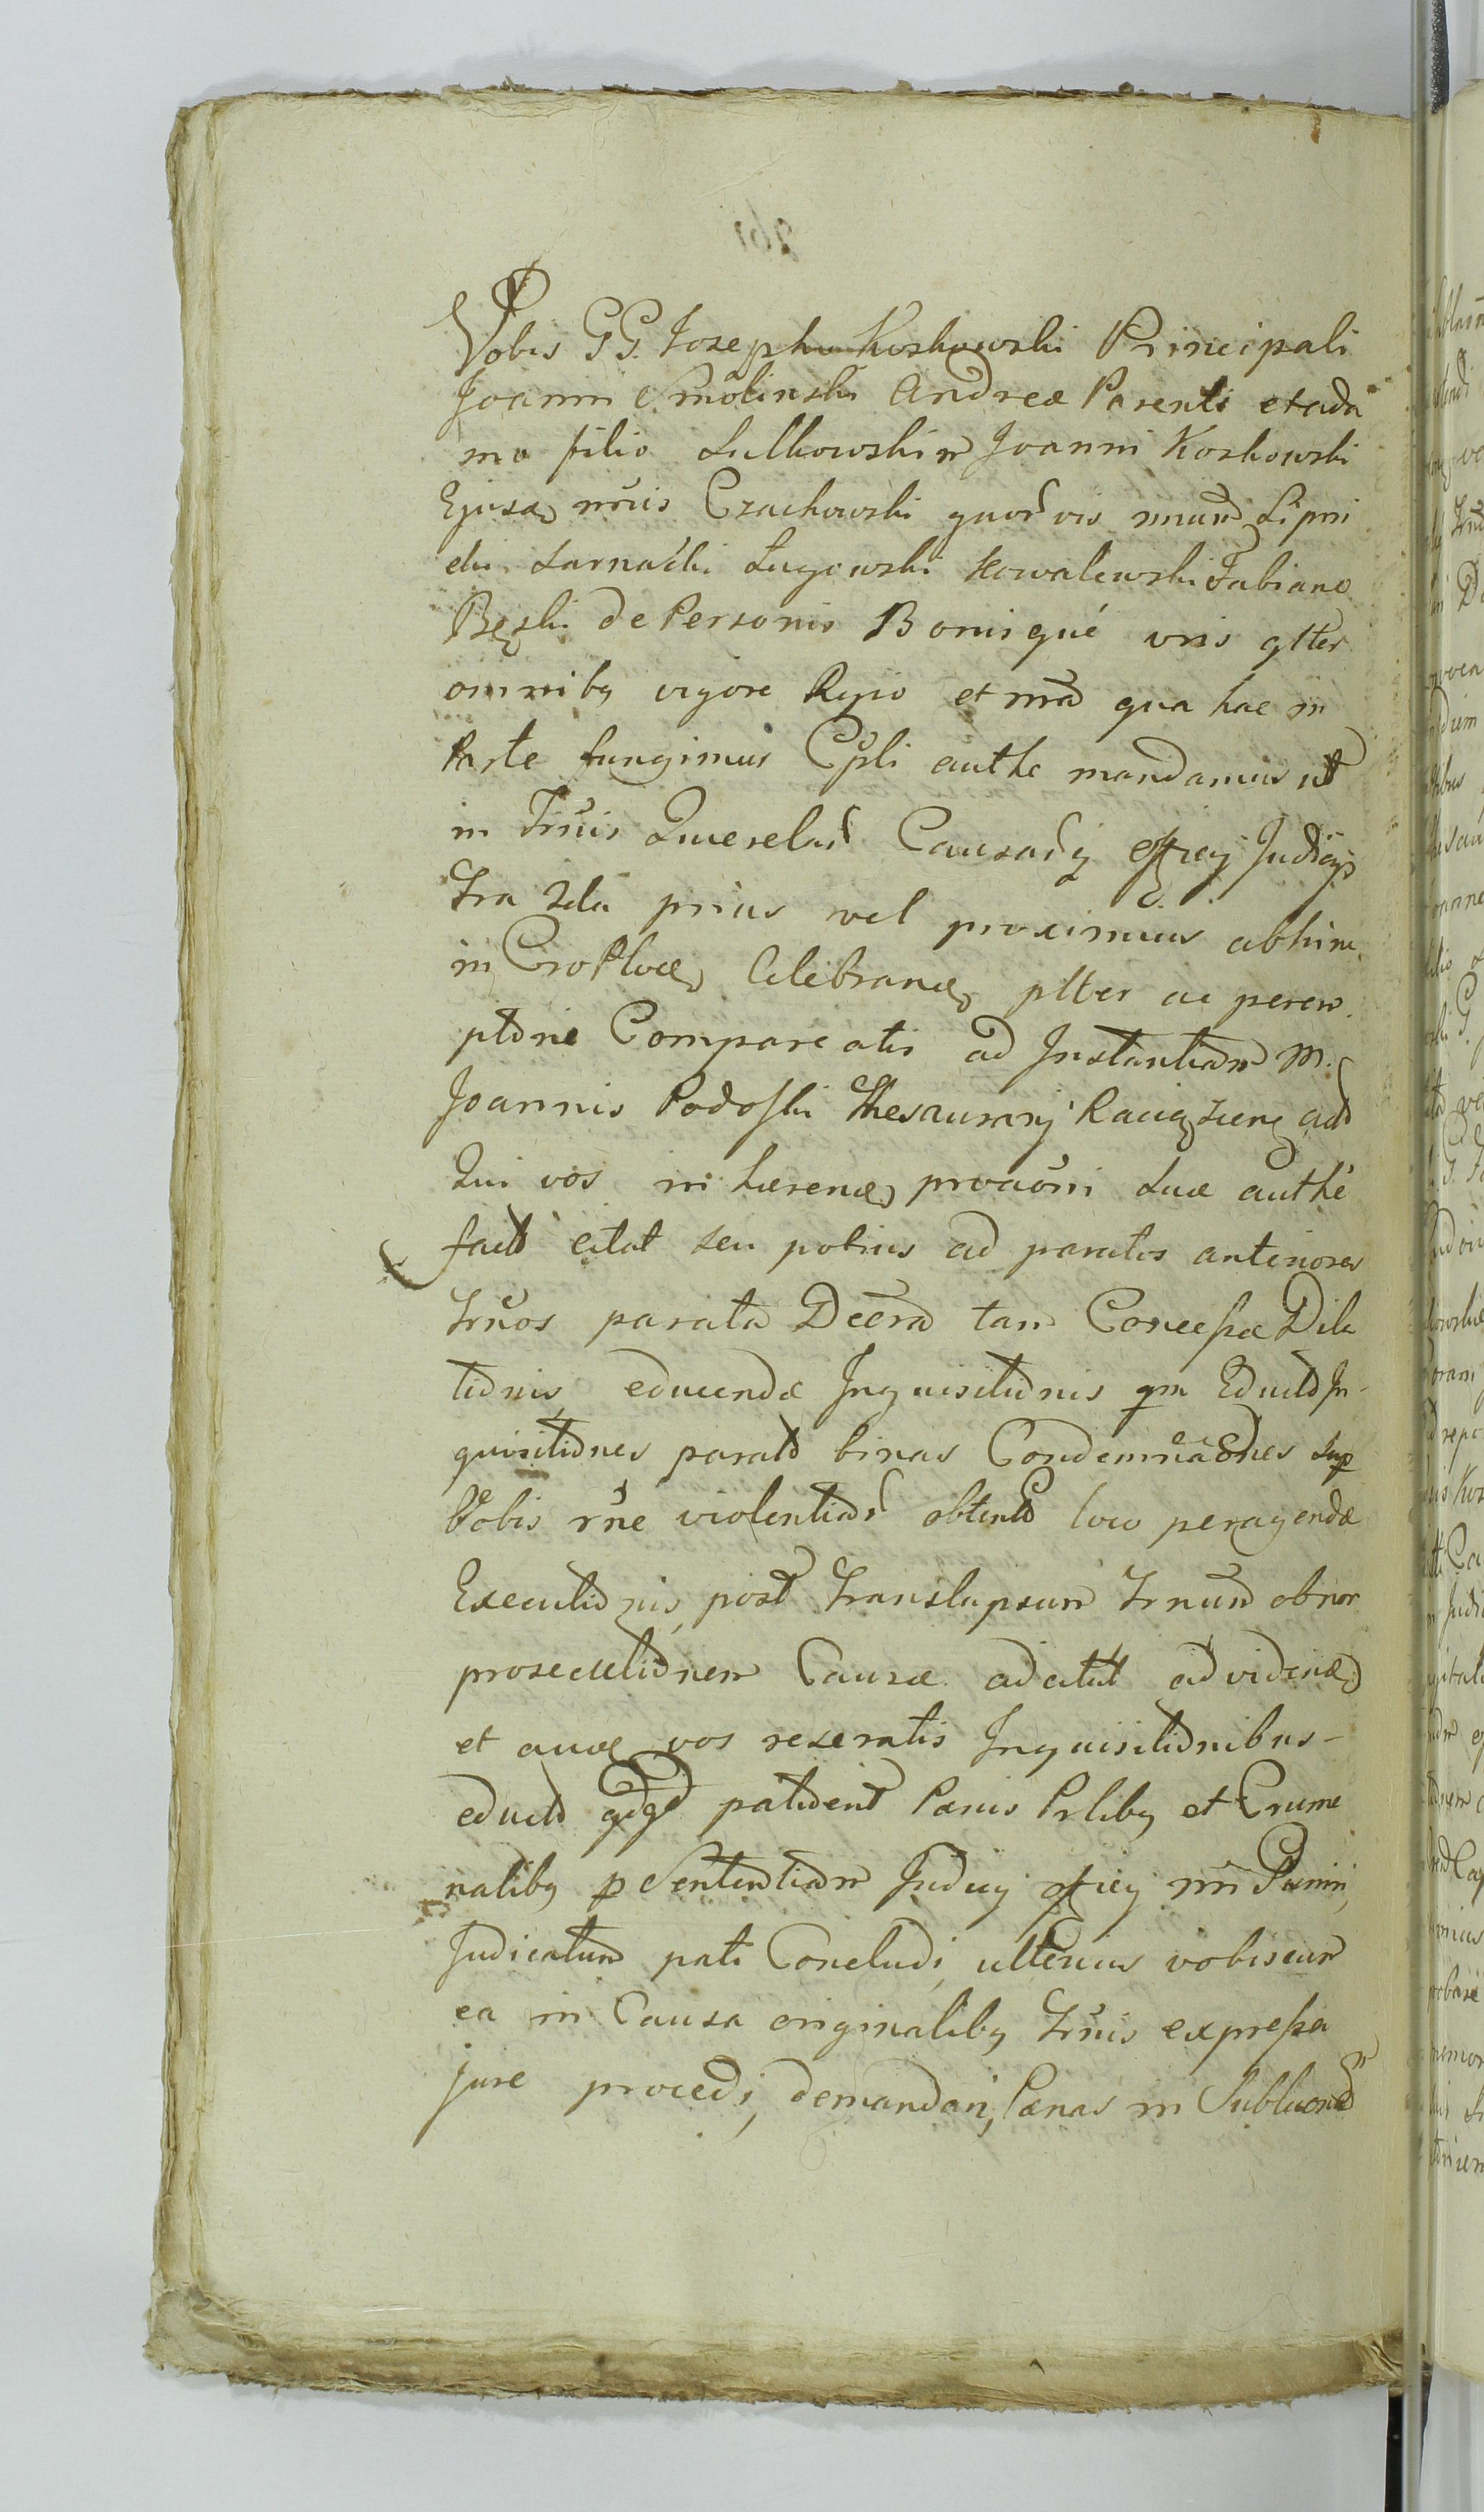 Vobis GG. Josepho Koskowski Principali
Joanni Smolinski Andreæ Parenti et Ada
mo filio Sulkowskim Joanni Koskowski
Ejusd nr̃is Czachowski quor̃vis Lipni
cki Sarnacki Ługowski Kowalewski Fabiano
Bęski de Personis Bonisque vris gltter
omnibq vigore Regio et nrã qua hac in
Parte fungimus Cpli authe mandamus ut
in Tr̃nis Querelar Causarq offciy Judicys
tra prius vel proximius abhinc
in Cro Ploceñ Celebrand pltter ac perem
ptdrie Compareatis ad Instantiam M.
Joannis Podoski Thesaurarij Raciązieñ
Qui vos in hærend procaõni Suæ authe
fact citat seu potius ad paratos anteriores
tr̃nos parata Decr̃a tam Concessæ Dila
tidnis, educendæ Inquisitidnis qm Educt In-
quisitidnes parat binas Condemnaõnes sup
Vobis r̃ne violentiar obtent loco peragendæ
Executidnis, post translapsum Trnum ob nor
prosecutidnem Causæ ad citat ad videnđ
et auđ vos reseratis Inquisitidnibus-
educt patident Pænis Prlibq et Crume
nalibq p Sententiam Judicy offciy nr̃i Puniri,
Judicatum pati Concludi, ulterius vobiscum
ea in Causa originalibq tr̃nis expressa
jure procedi, demandari, Pænas in